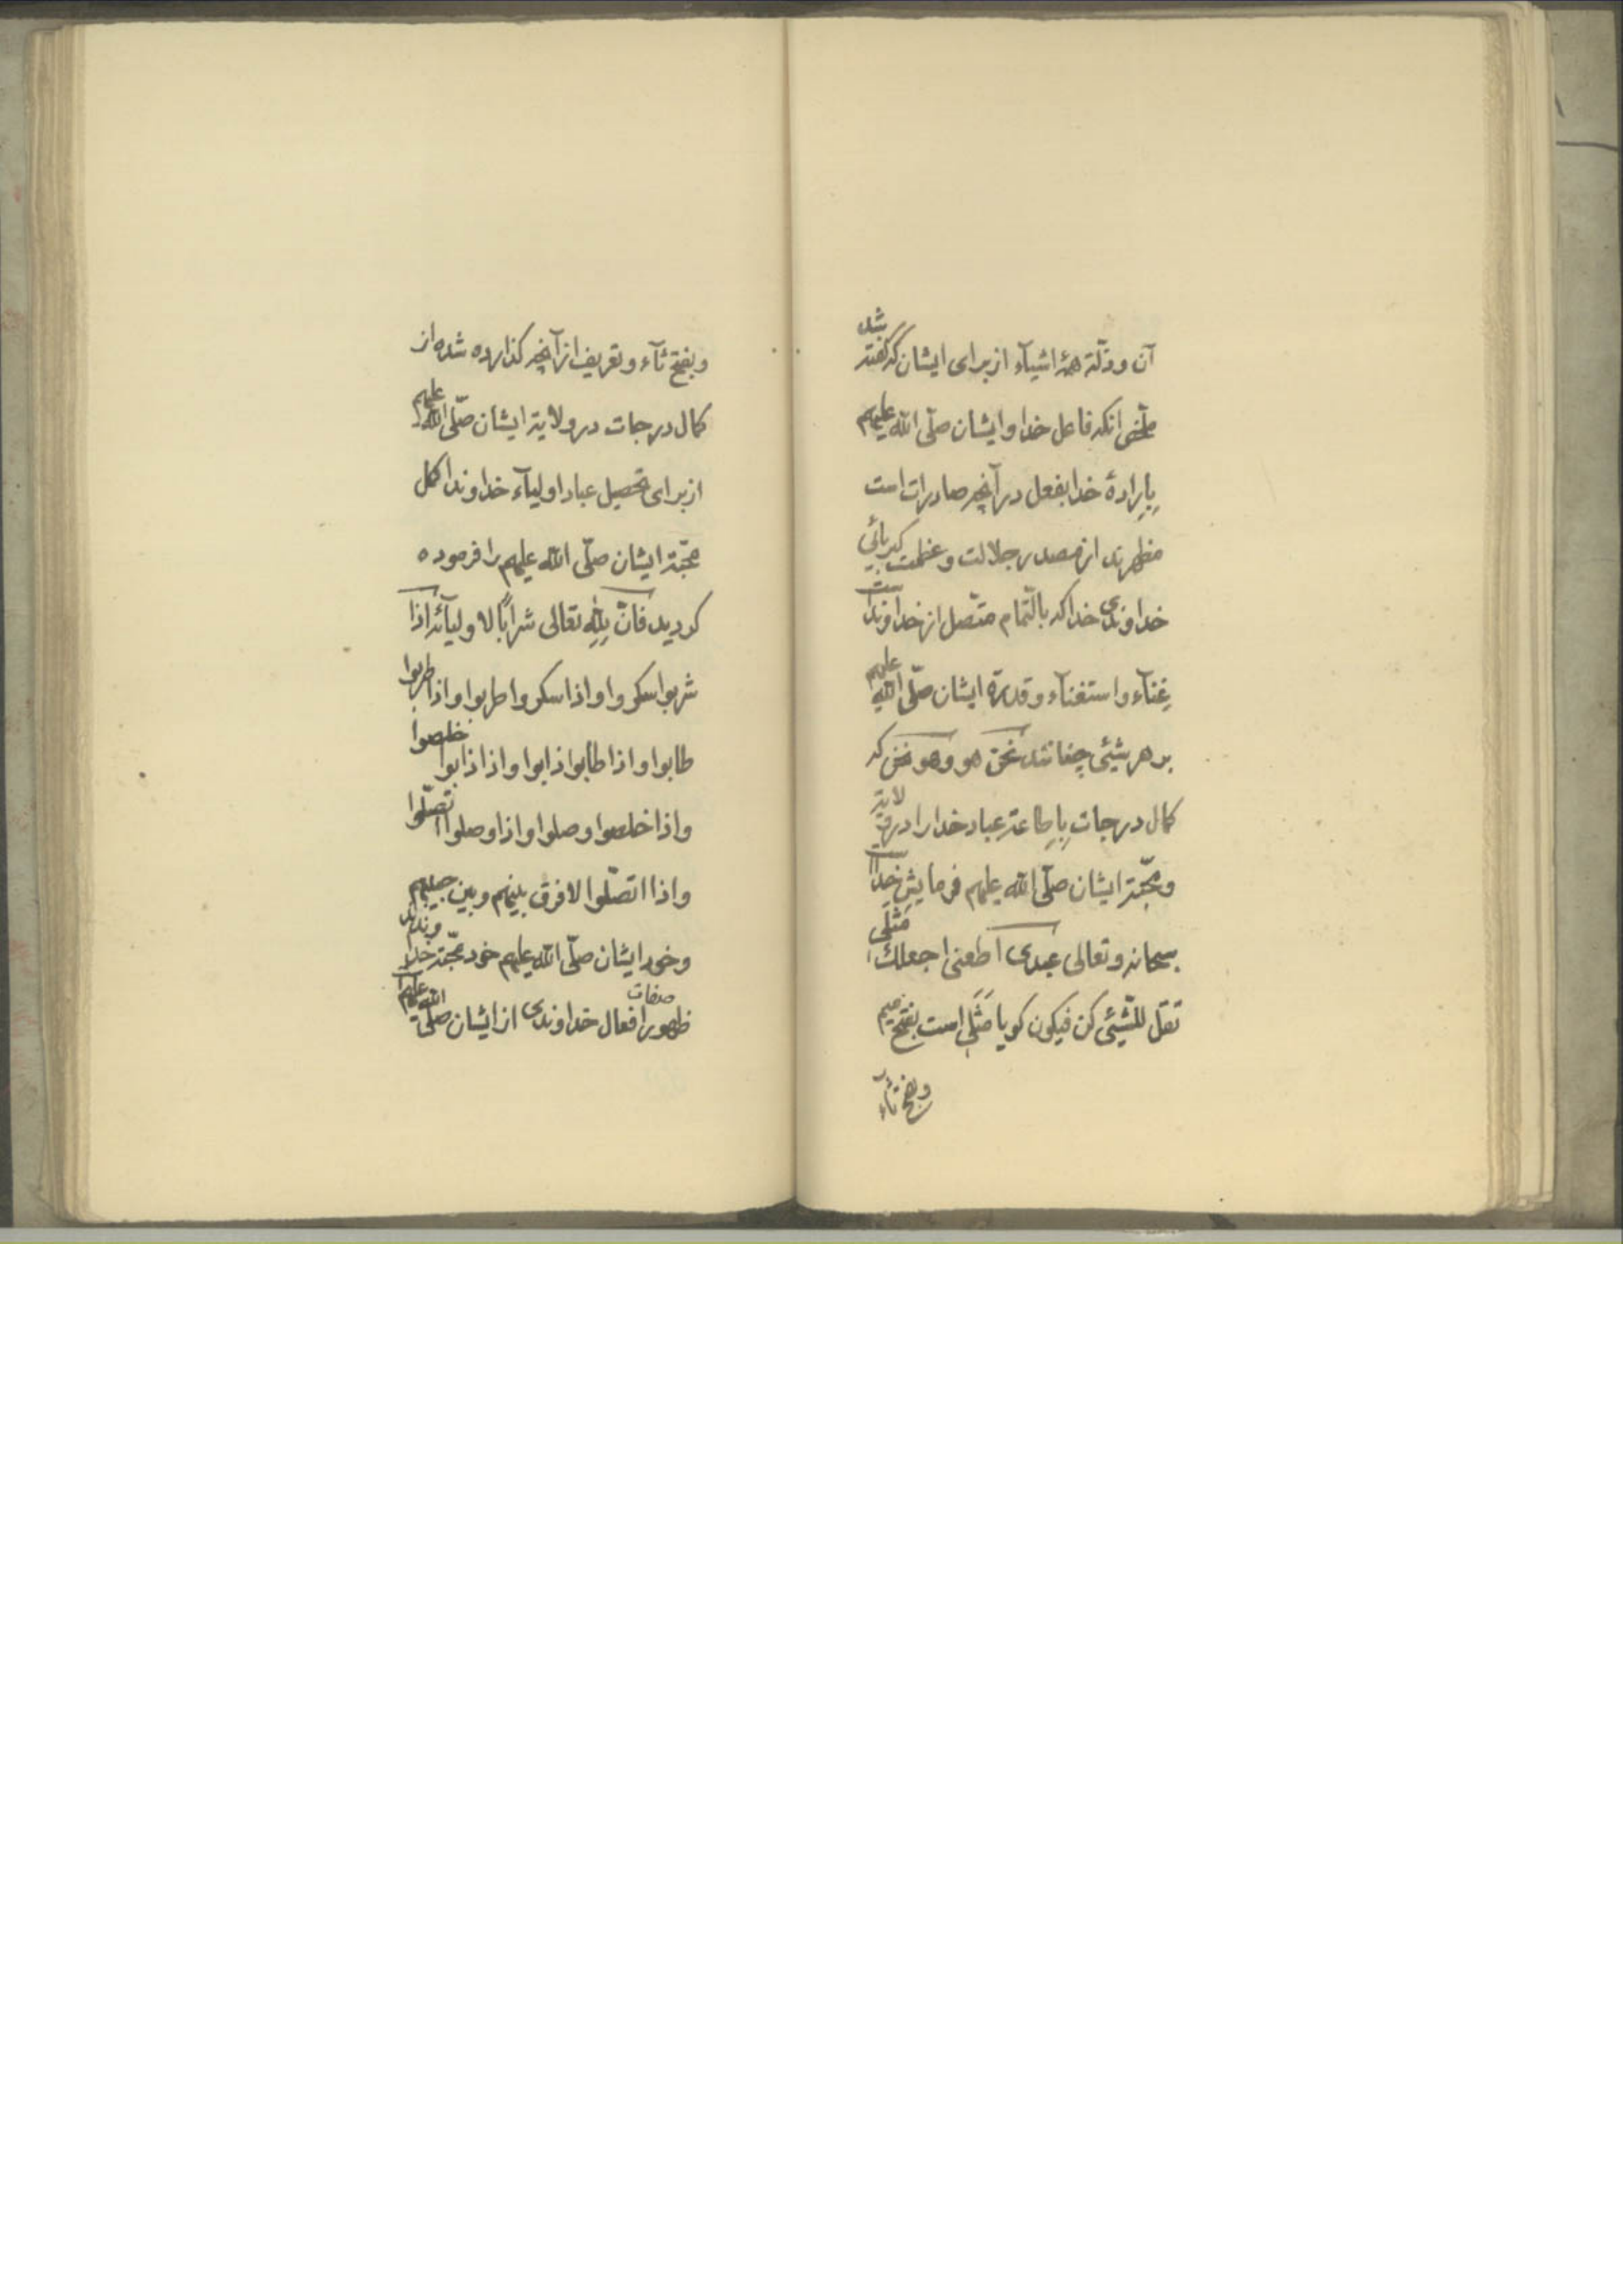 آن و ذلّة همهٔ اشیآء از برای ایشان که گفته شد
ملخّص انکه فاعل خدا و ایشان صلّی اللّه علیهم
بِاِرادهٔ خدا بفعل در آنچه صادرات است
مظهرند از مصدر جلالت و عظمت کبریائی
خداوندی خدا که بالتّمام متّصل از خداوند است
غِنآء و استغنآء و قدرة ایشان صلّی اللّه علیهم
بر هر شیئی چنانند نحن هو و هو نحن که
کمال درجات بِاِطاعته عباد خدا را در ولایة
و محبّة ایشان صلّی اللّه علیهم فرمایش خدا
سبحانه و تعالی عبدی اطعنی اجعلک مَثَلی
تقل للشّیئی کن فیکون کویا مَثَلی است بفتح میم
و بفتح ثآء
و بفتح ثآء و تعریف از آنچه کذارده شده از
کمال درجات در ولایة ایشان صلّی اللّه علیهم
از برای تحصیل عباد اولیآء خداوند اکمل
محبّة ایشان صلّی اللّه علیهم را فرموده
کردید فانّ لِلّهِ تعالی شراباً لاولیآئه اذا
شربوا سکروا و اذا سکروا طربوا و اذا طربوا
طابوا و اذا طابوا ذابوا و اذا ذابوا خلصوا
و اذا خلصوا وصلوا و اذا وصلوا اتصّلوا
و اذا اتصّلوا لا فرق بینهم و بین حبیبهم
و خود ایشان صلّی اللّه علیهم خود محبّة خداوندند
ظهور صفات افعال خداوندی از ایشان صلّی اللّه علیهم